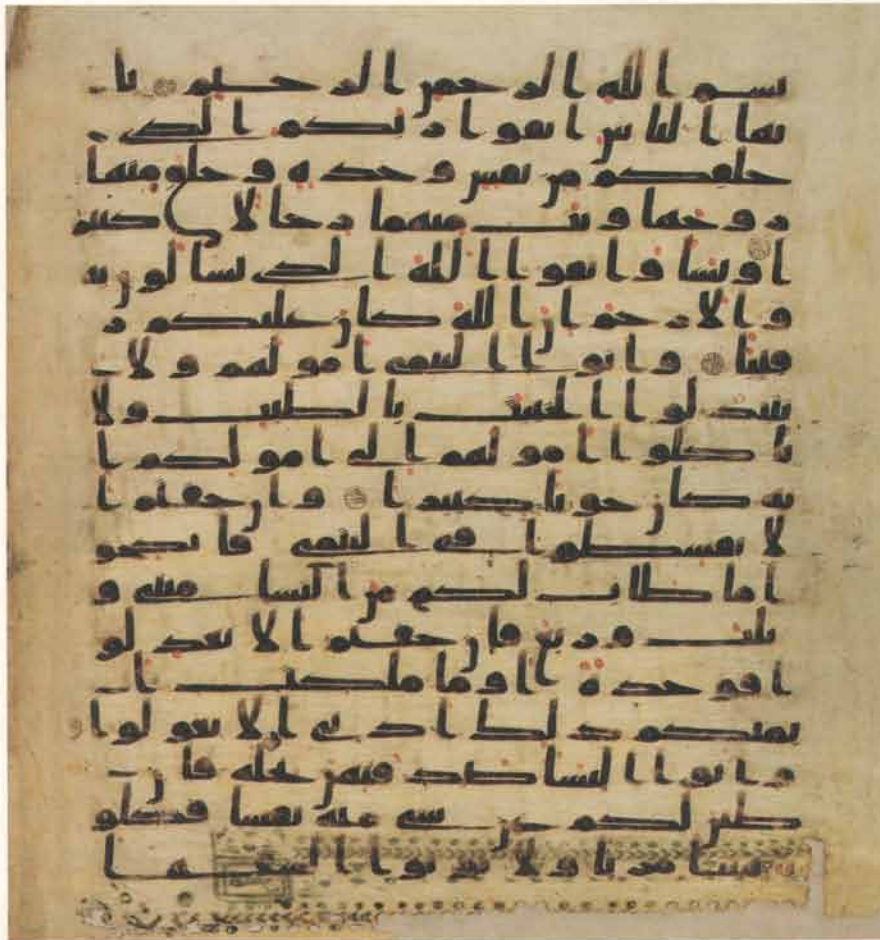 بسم الله الرحمن الرحيم يا
يها الناس اتقوا ربكم الذي
خلقكم من نفس وحدة وخلق منها
زوجها وبث منهما رجالا كثير
ا ونسا واتقوا الله الذي تسالون به
والارحم ان الله كان عليكم ر
قيبا واتوا اليتمى امولهم ولا
تتبدلوا الخبيث بالطيب ولا
تاكلوا امولهم الى امولكم ا
نه كان حوبا كبيرا وان خفتم ا
لا تقسطوا في اليتمى فانكحو
ا ما طاب لكم من النسا مثنى و
ثلث وربع فان خفتم الا تعدلو
ا فوحدة او ما ملكت ا
يمنكم ذلك ادنى الا تعولوا
واتوا النسا صدقتهن نحلة فان
طبن لكم عن شي منه نفسا فكلو
ه هنيا مريا ولا توتوا السفها